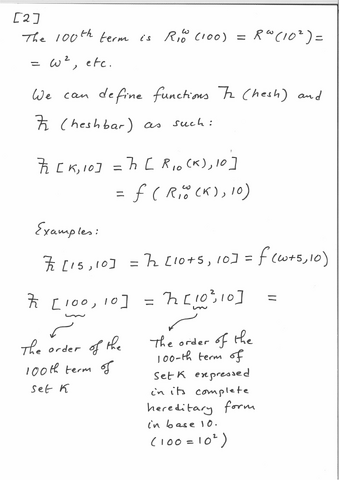 [2]
The 100th term is R₁₀^ω(100) = R^ω(10²) =
= ω², etc.
We can define functions ℏ (hesh) and
ℏ (heshbar) as such:
ℏ[K,10] = h[R₁₀(K),10]
= f(R₁₀^ω(K), 10)
Examples:
ℏ[15,10] = h[10+5,10] = f(ω+5,10)
ℏ[100,10] = h[10²,10] =
The order of the
100th term of
set K
The order of the
100-th term of
set K expressed
in its complete
hereditary form
in base 10.
(100 = 10²)